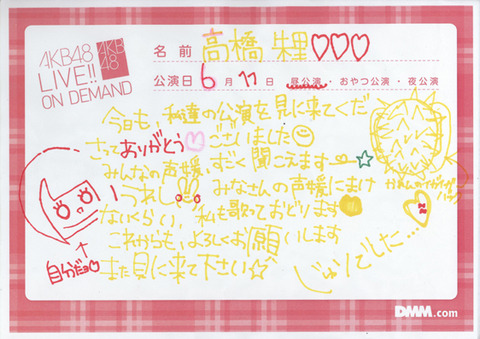 AKB48
LIVE!!
ON DEMAND
AKB
48
名前 高橋朱里♡♡♡
公演日 6月17日 昼公演・おやつ公演・夜公演
今日も、私達の公演を見に来てくだ
さってありがとうございました
みんなの声援、すごく聞こえますー☆
うれしい
みなさんの声援にまけ
ないくらい、私も歌っておどります
これからも、よろしくお願いします
また見に来て下さい☆
自分だョ♡
じゅりでした...
DMM.com